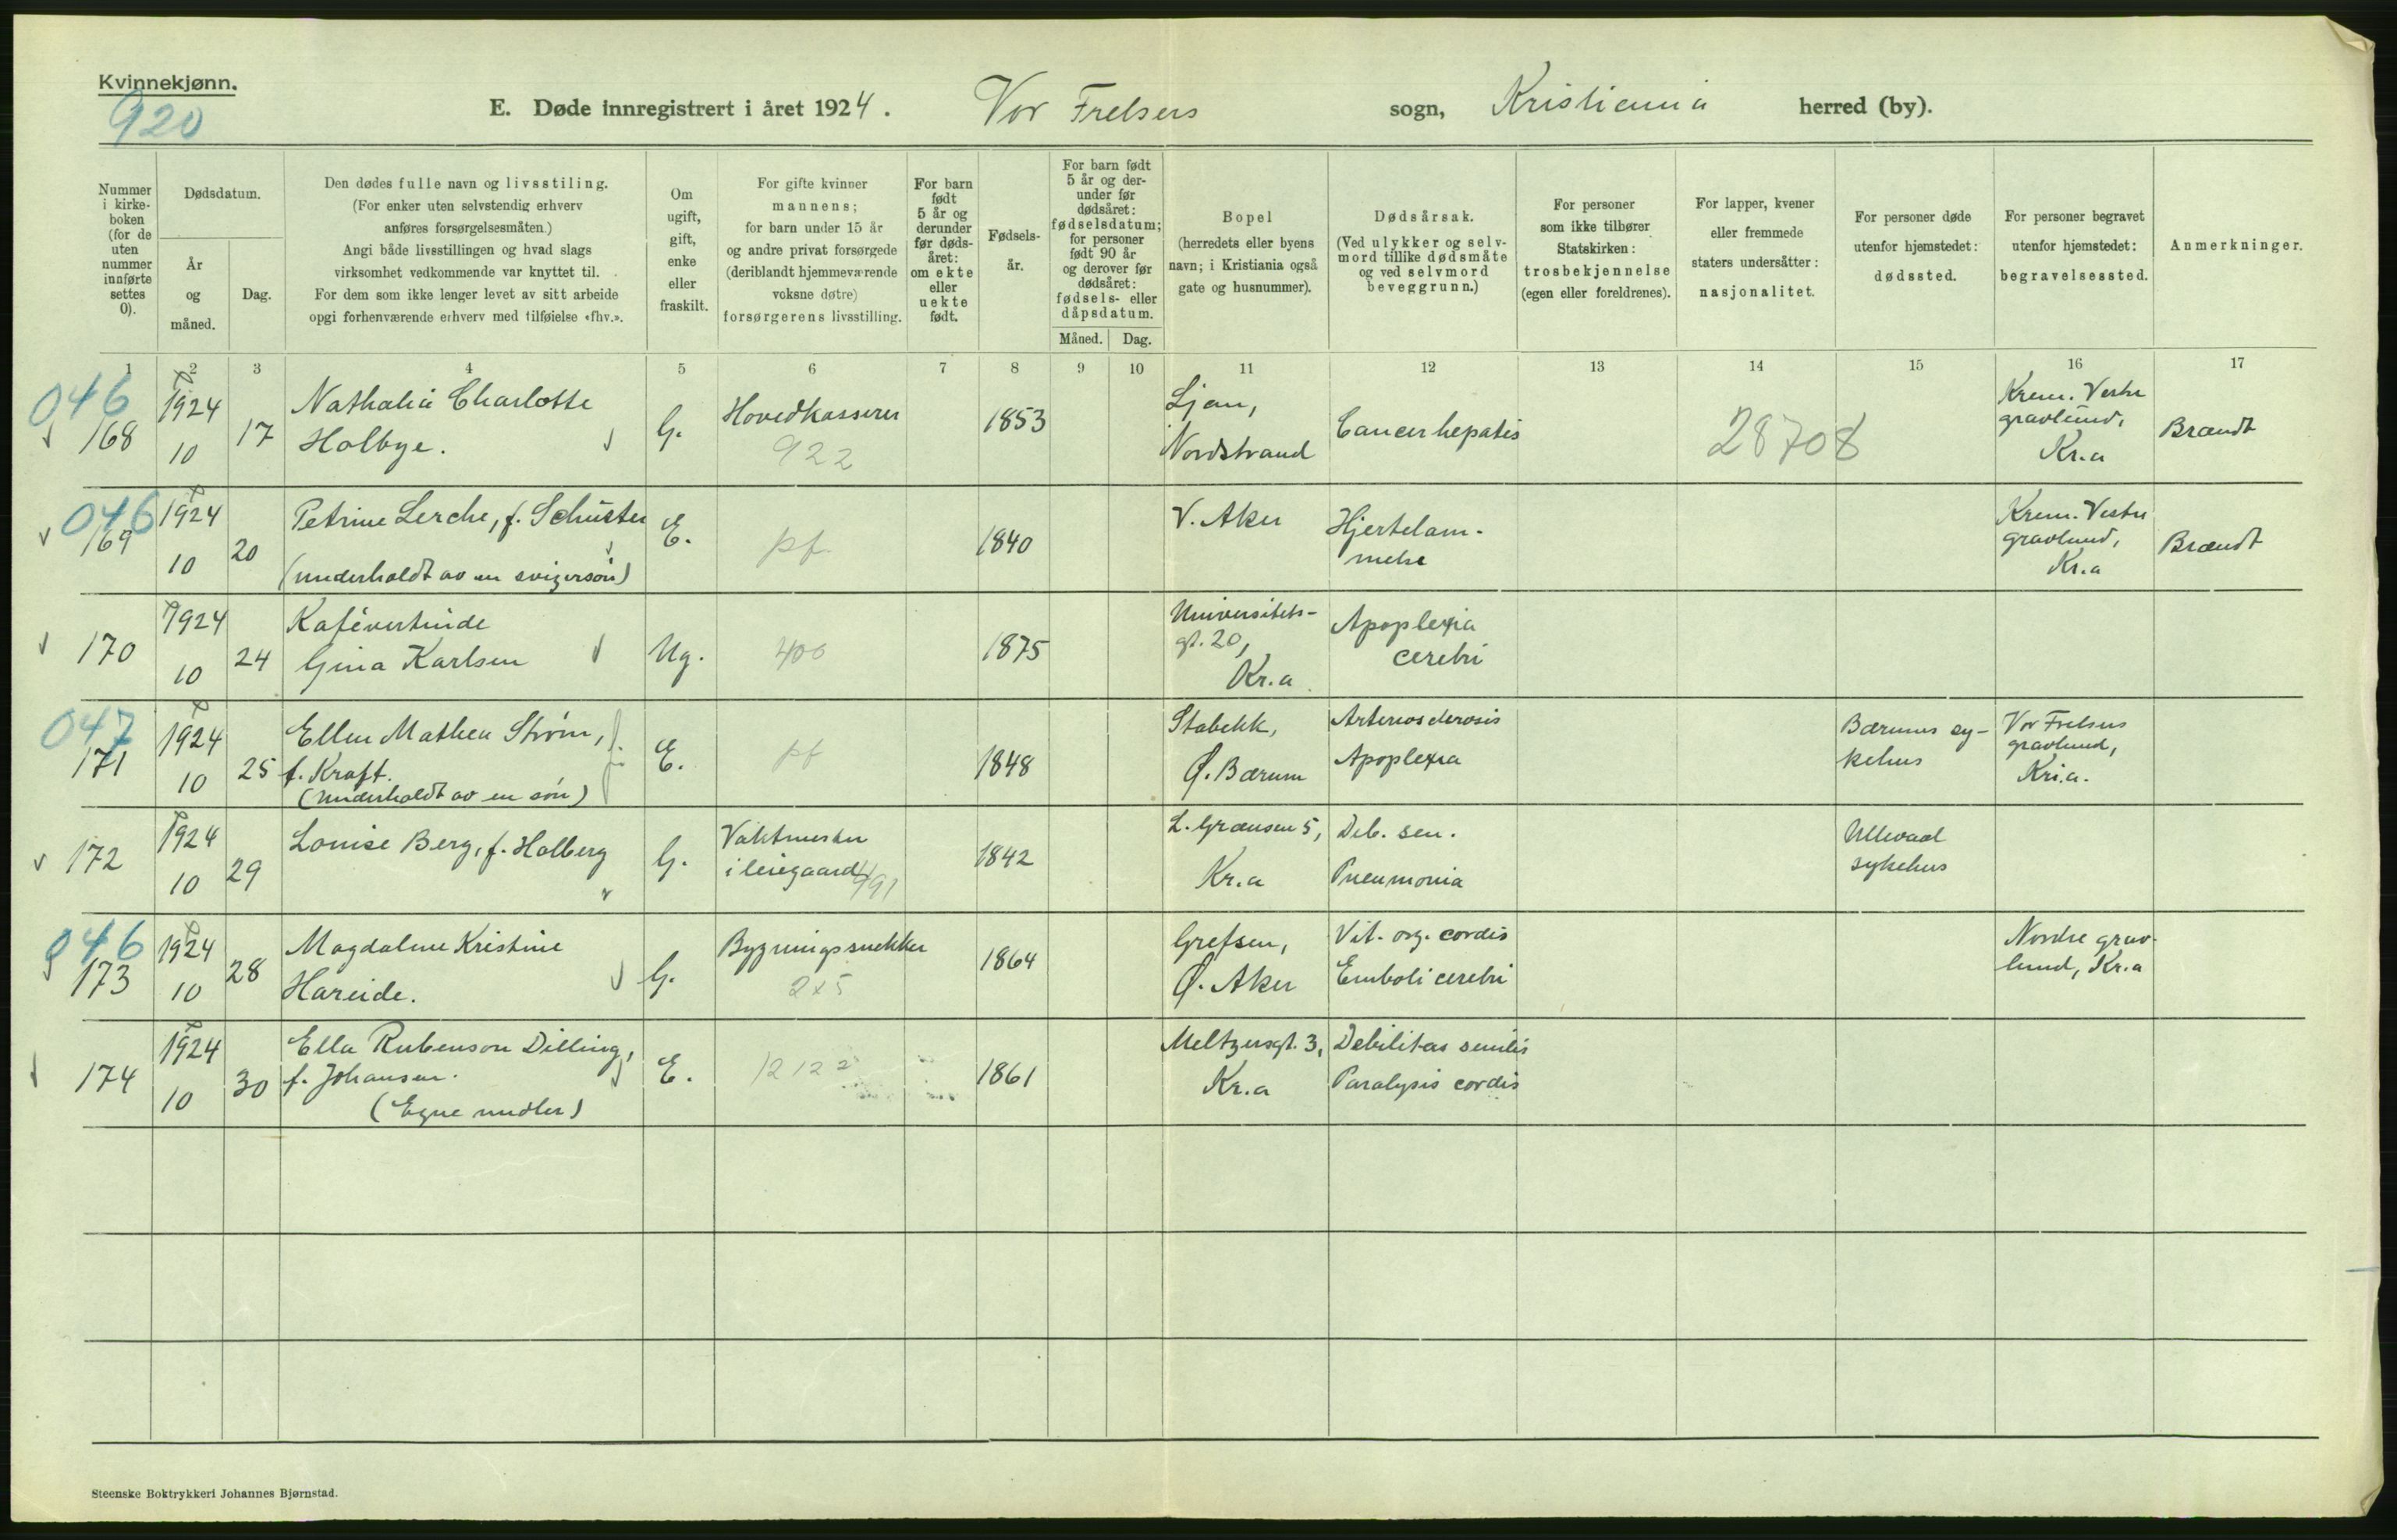 Kvinnekjønn.
920
E. Døde innregistrert i året 1924. Vor Frelsers sogn, Kristiania herred (by).
Nummer i kirke-boken (for de uten nummer innførte settes 0).
Dødsdatum.
År og måned.
Dag.
Den dødes fulle navn og livsstiling.
(For enker uten selvstendig erhverv
anføres forsørgelsesmåten.)
Angi både livsstillingen og hvad slags
virksomhet vedkommende var knyttet til.
For dem som ikke lenger levet av sitt arbeide
opgi forhenværende erhverv med tilføielse «fhv.».
Om
ugift,
gift,
enke
eller
fraskilt.
For gifte kvinner
mannens;
for barn under 15 år
og andre privat forsørgede
(deriblandt hjemmeværende
voksne døtre)
forsørgerens livsstilling.
For barn
født
5 år og
derunder
før døds-
året:
om ekte
eller
uekte
født.
Fødsels-
år.
For barn født
5 år og der-
under før
dødsåret:
fødselsdatum;
for personer
født 90 år
og derover før
dødsåret:
fødsels- eller
dåpsdatum.
Måned. Dag.
Bopel
(herredets eller byens
navn; i Kristiania også
gate og husnummer).
Dødsårsak.
(Ved ulykker og selv-
mord tillike dødsmåte
og ved selvmord
beveggrunn.)
For personer
som ikke tilhører
Statskirken:
trosbekjennelse
(egen eller foreldrenes).
For lapper, kvener
eller fremmede
staters undersåtter:
nasjonalitet.
For personer døde
utenfor hjemstedet:
dødssted.
For personer begravet
utenfor hjemstedet:
begravelsessted.
Anmerkninger.
1 2 3 4 5 6 7 8 9 10 11 12 13 14 15 16 17
046
168
1924
10
17
Nathalia Charlotte
Holbye.
G.
Hovedkasserer
922
1853
Ljan,
Nordstrand
Cancer hepatis
28708
Krem. Vestre
gravlund,
Kr.a
Brandt
046
169
1924
10
20
Petrine Lerche, f. Schuster
(underholdt av en svigersøn)
E.
pf.
1840
V. Aker
Hjertelam-
melse
Krem. Vestre
gravlund,
Kr.a
Brandt
170
1924
10
24
Kafévertinde
Gina Karlsen
Ug.
400
1875
Universitets-
gt. 20,
Kr.a
Apoplexia
cerebri
047
171
1924
10
25
Ellen Mathea Strøm,
f. Kraft.
(underholdt av en søn)
E.
pf
1848
Stabekk,
Ø. Bærum
Arteriosclerosis
Apoplexia
Bærums sy-
kehus
Vor Frelsers
gravlund,
Kri.a.
172
1924
10
29
Louise Berg, f. Holberg
G.
Vaktmester
i leiegaard
991
1842
L. Grænsen 5,
Kr.a
Deb. sen.
Pneumonia
Ullevaal
sykehus
046
173
1924
10
28
Magdalene Kristine
Hareide.
G.
Bygningssnekker
2x5
1864
Grefsen,
Ø. Aker
Vit. org. cordis
Emboli cerebri
Nordre grav-
lund, Kr.a
174
1924
10
30
Ella Rubenson Dilling,
f. Johansen.
(Egne midler)
E.
12122
1861
Meltzersgt. 3,
Kr.a
Debilitas senilis
Paralysis cordis
Steenske Boktrykkeri Johannes Bjørnstad.